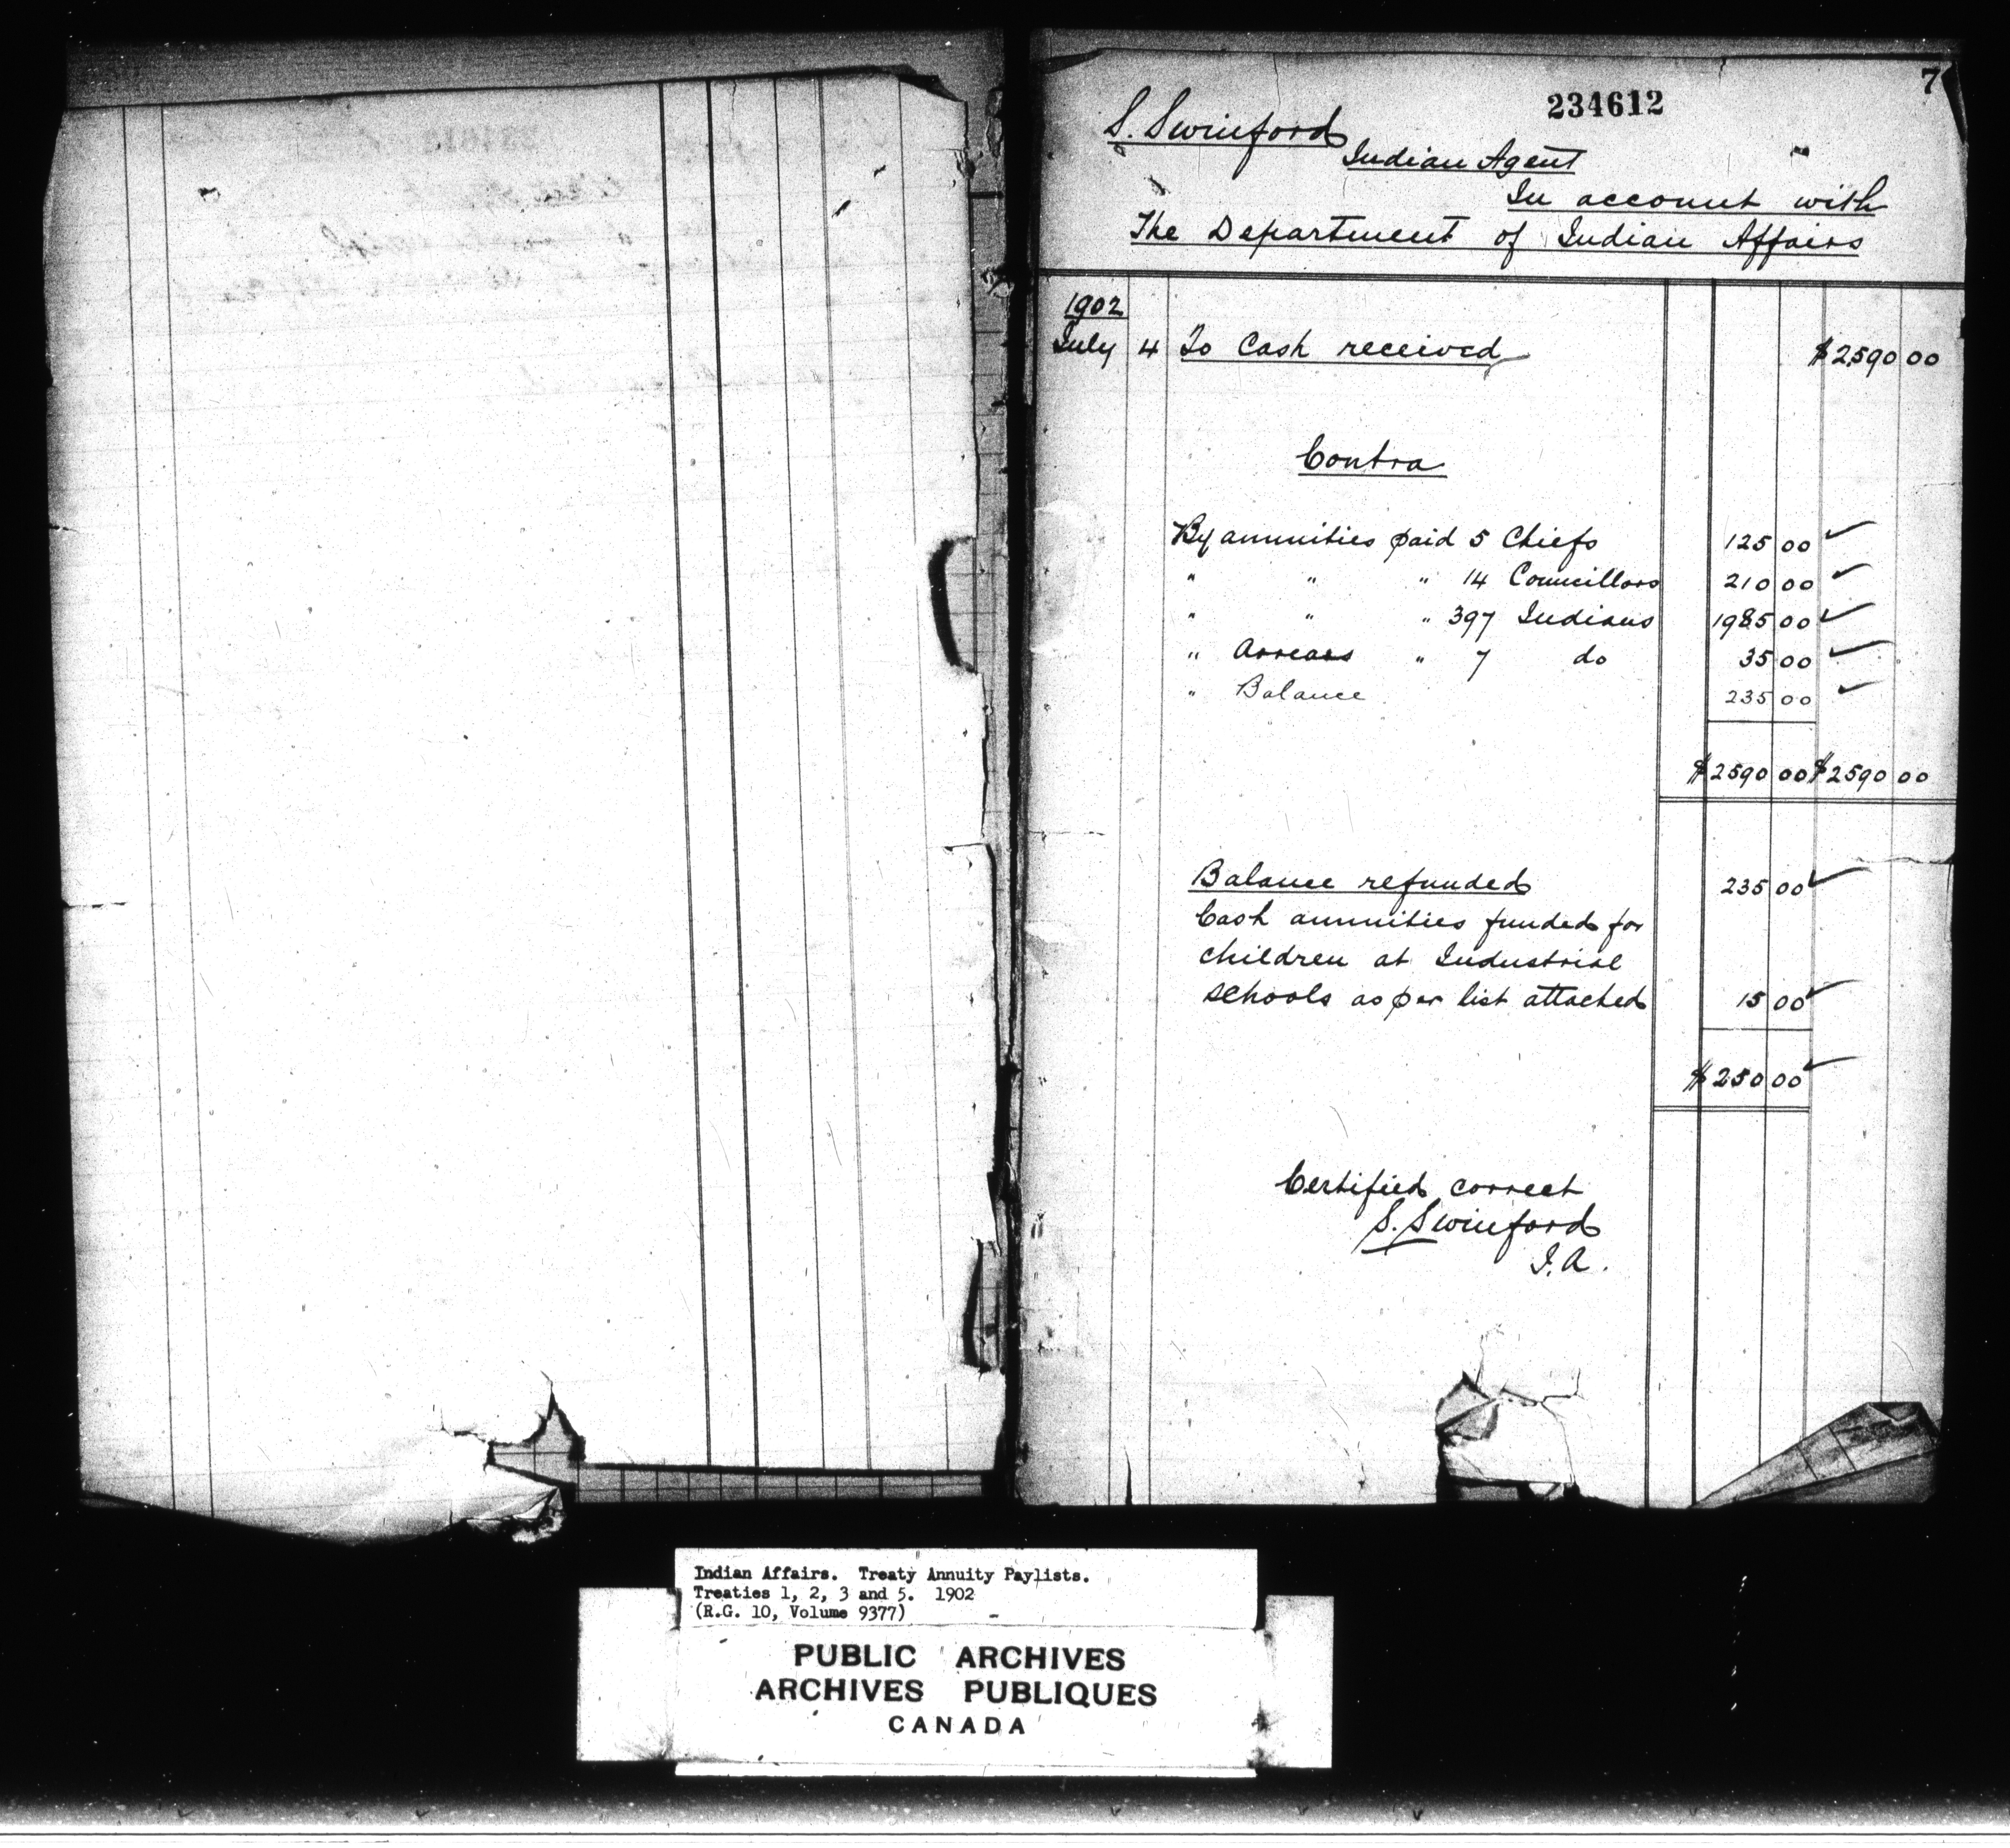 7
234612
S. Swinford
Indian Agent
In account with
The Department of Indian Affairs
1902
July 4 To Cash received $2590 00
Contra
By annuities paid 5 Chiefs 125 00 ✓
" " " 14 Councillors 210 00 ✓
" " " 397 Indians 1985 00 ✓
" Arrears " 7 do 35 00 ✓
" Balance 235 00 ✓
$2590 00 $2590 00
Balance refunded 235 00 ✓
Cash annuities funded for
children at Industrial
schools as per list attached 15 00 ✓
$250 00 ✓
Certified correct
S. Swinford
I.A.
Indian Affairs. Treaty Annuity Paylists.
Treaties 1, 2, 3 and 5. 1902
(R.G. 10, Volume 9377)
PUBLIC ARCHIVES
ARCHIVES PUBLIQUES
CANADA